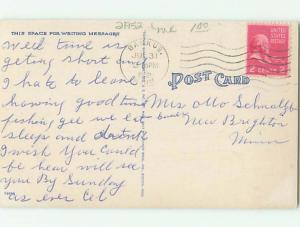 27152 me 1.00
THIS SPACE FOR WRITING MESSAGES
Well time is
getting short &
I hate to leave
having good time
fishing gee we eat
sleep and drink
I wish you could
be hear will see
you By Sunday
as ever Cel
JUL 31
PM
UNITED STATES
POSTAGE
POST CARD
Mrs Otto Schnalzer
New Brighton
Minn